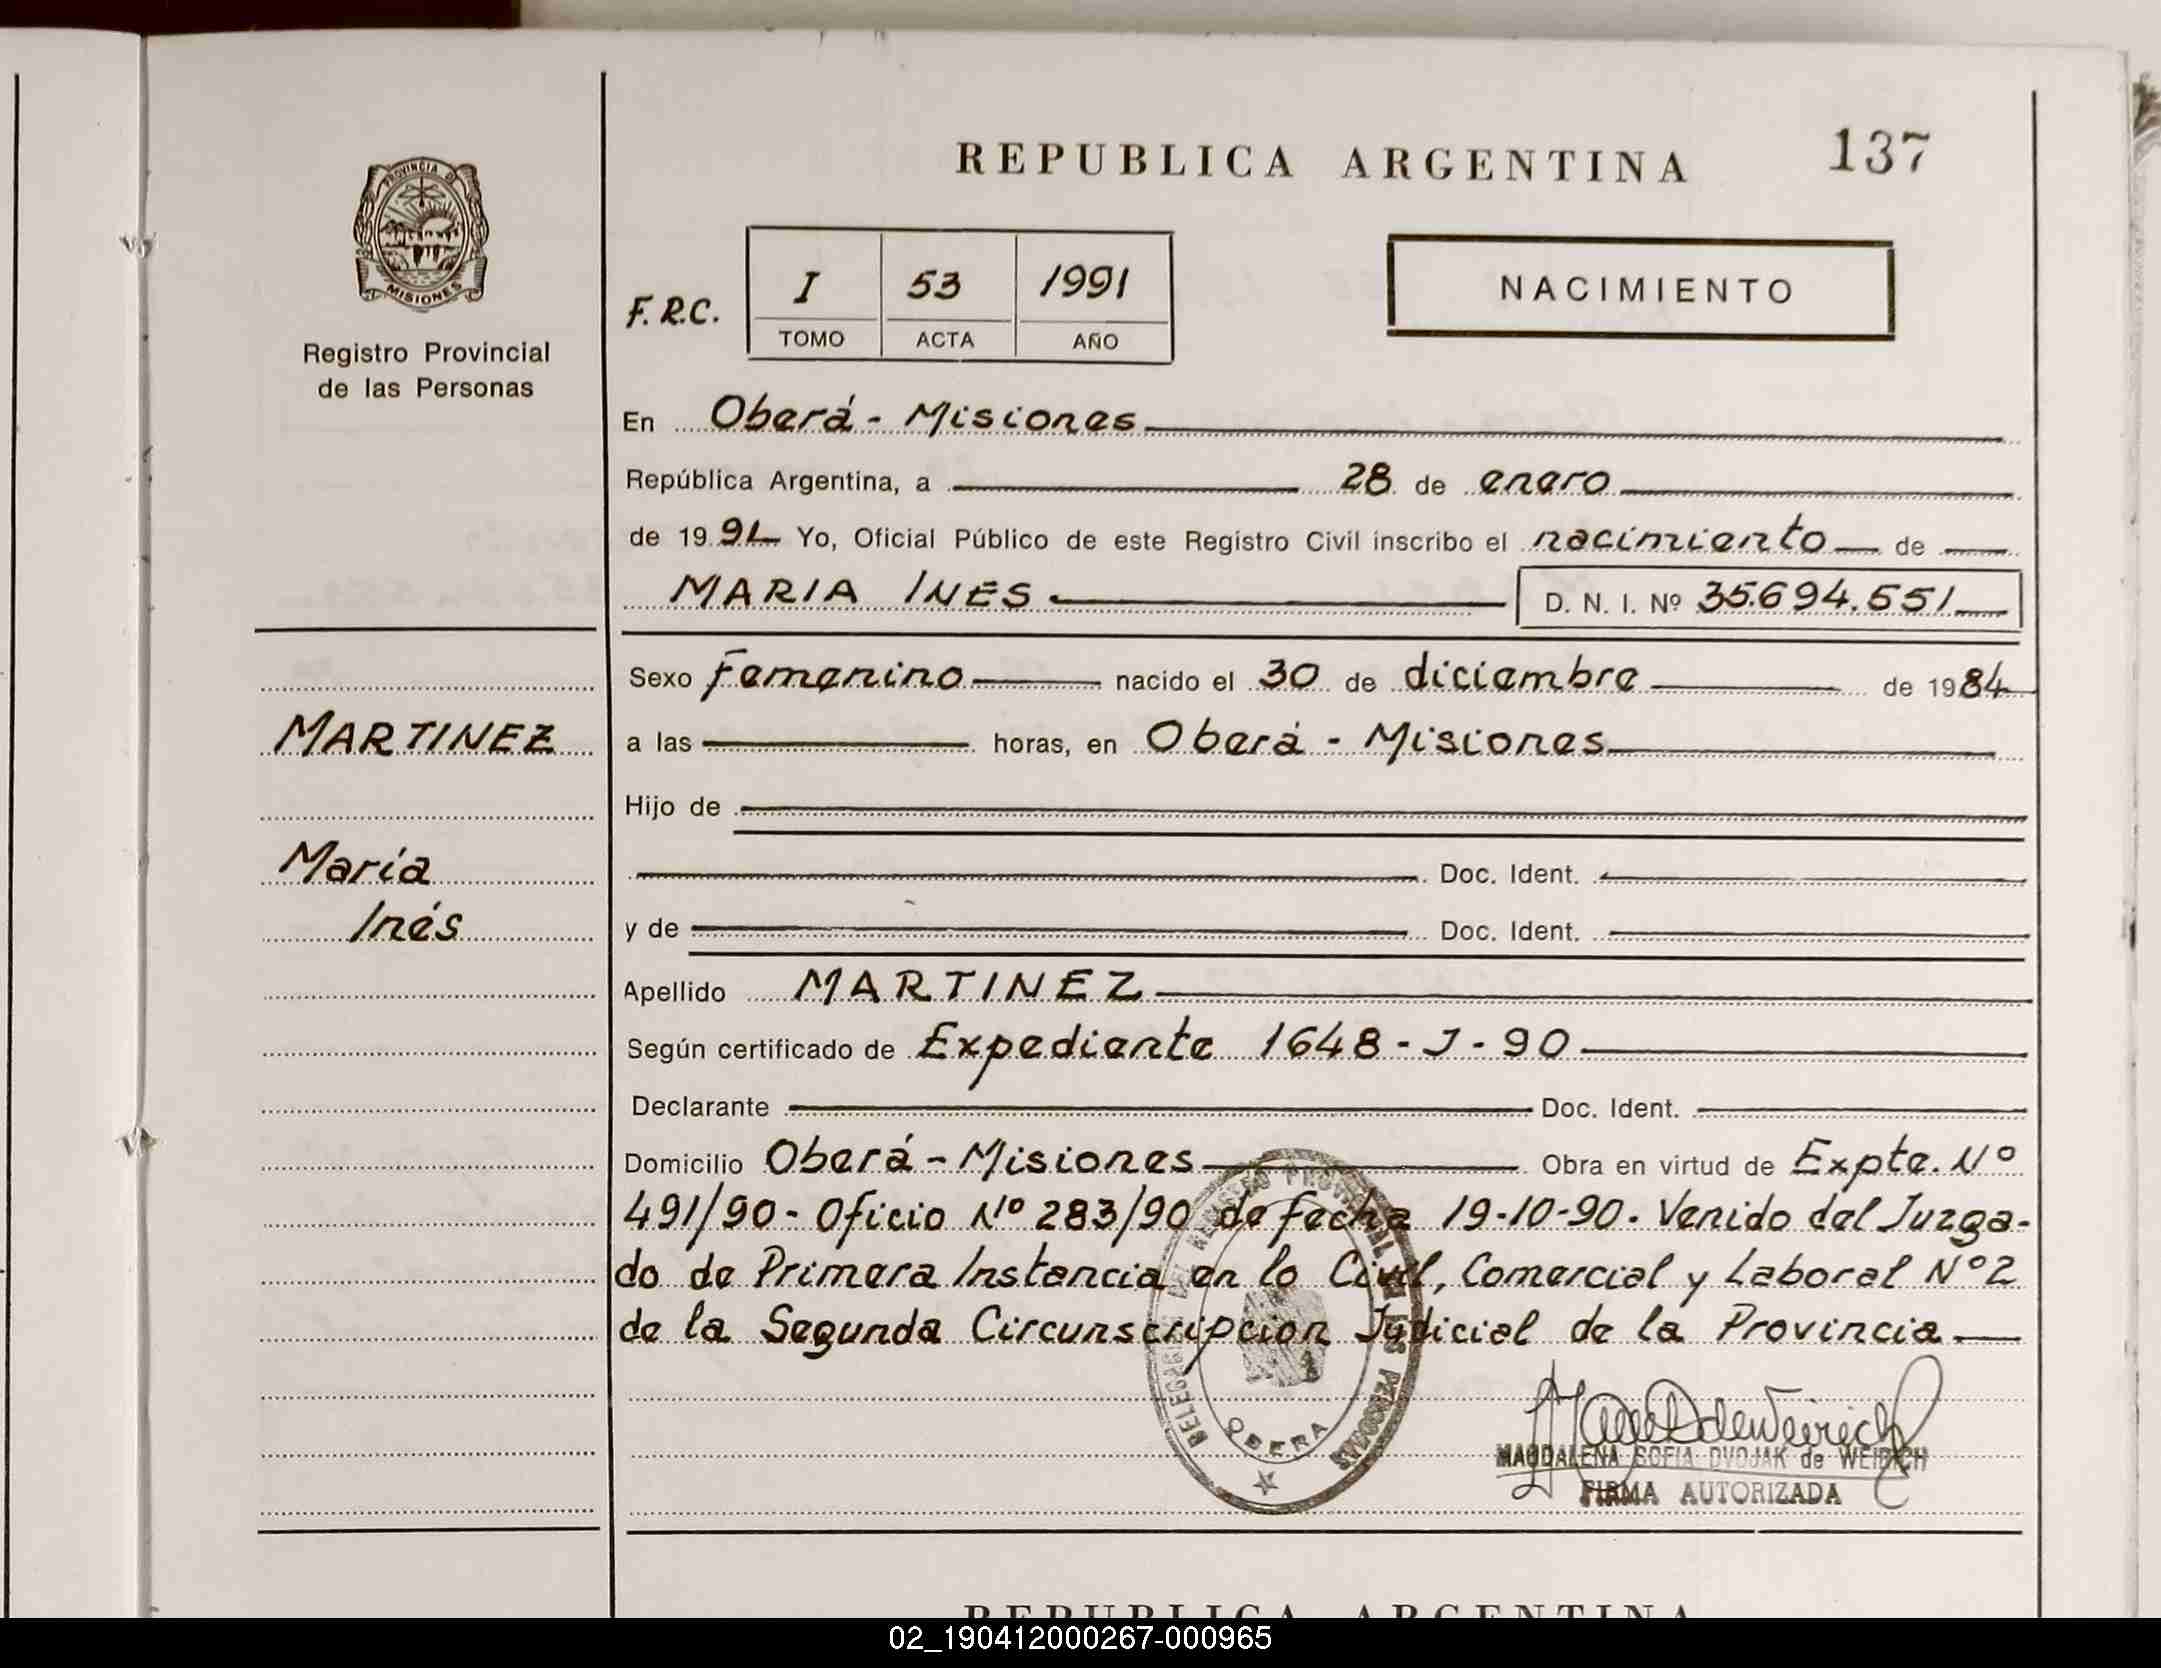 REPUBLICA ARGENTINA 137
PROVINCIA D
MISIONES
Registro Provincial
de las Personas
F.R.C. I 53 1991
TOMO ACTA AÑO
NACIMIENTO
En Oberá - Misiones
República Argentina, a 28 de enero
de 1991 Yo, Oficial Público de este Registro Civil inscribo el nacimiento de
MARIA INES D. N. I. Nº 35.694.551
Sexo Femenino nacido el 30 de diciembre de 1984
MARTINEZ
a las horas, en Oberá - Misiones
Hijo de
María
Doc. Ident.
Inés
y de Doc. Ident.
Apellido MARTINEZ
Según certificado de Expediente 1648 - J - 90
Declarante Doc. Ident.
Domicilio Oberá - Misiones Obra en virtud de Expte. Nº
491/90 - Oficio Nº 283/90 de fecha 19-10-90. Venido del Juzga-
do de Primera Instancia en lo Civil, Comercial y Laboral Nº 2
de la Segunda Circunscripcion Judicial de la Provincia
REGISTRO PROVINCIAL DE LAS PERSONAS
OBERA
MAGDALENA SOFIA DVOJAK de WEIRICH
FIRMA AUTORIZADA
REPUBLICA ARGENTINA
02_190412000267-000965